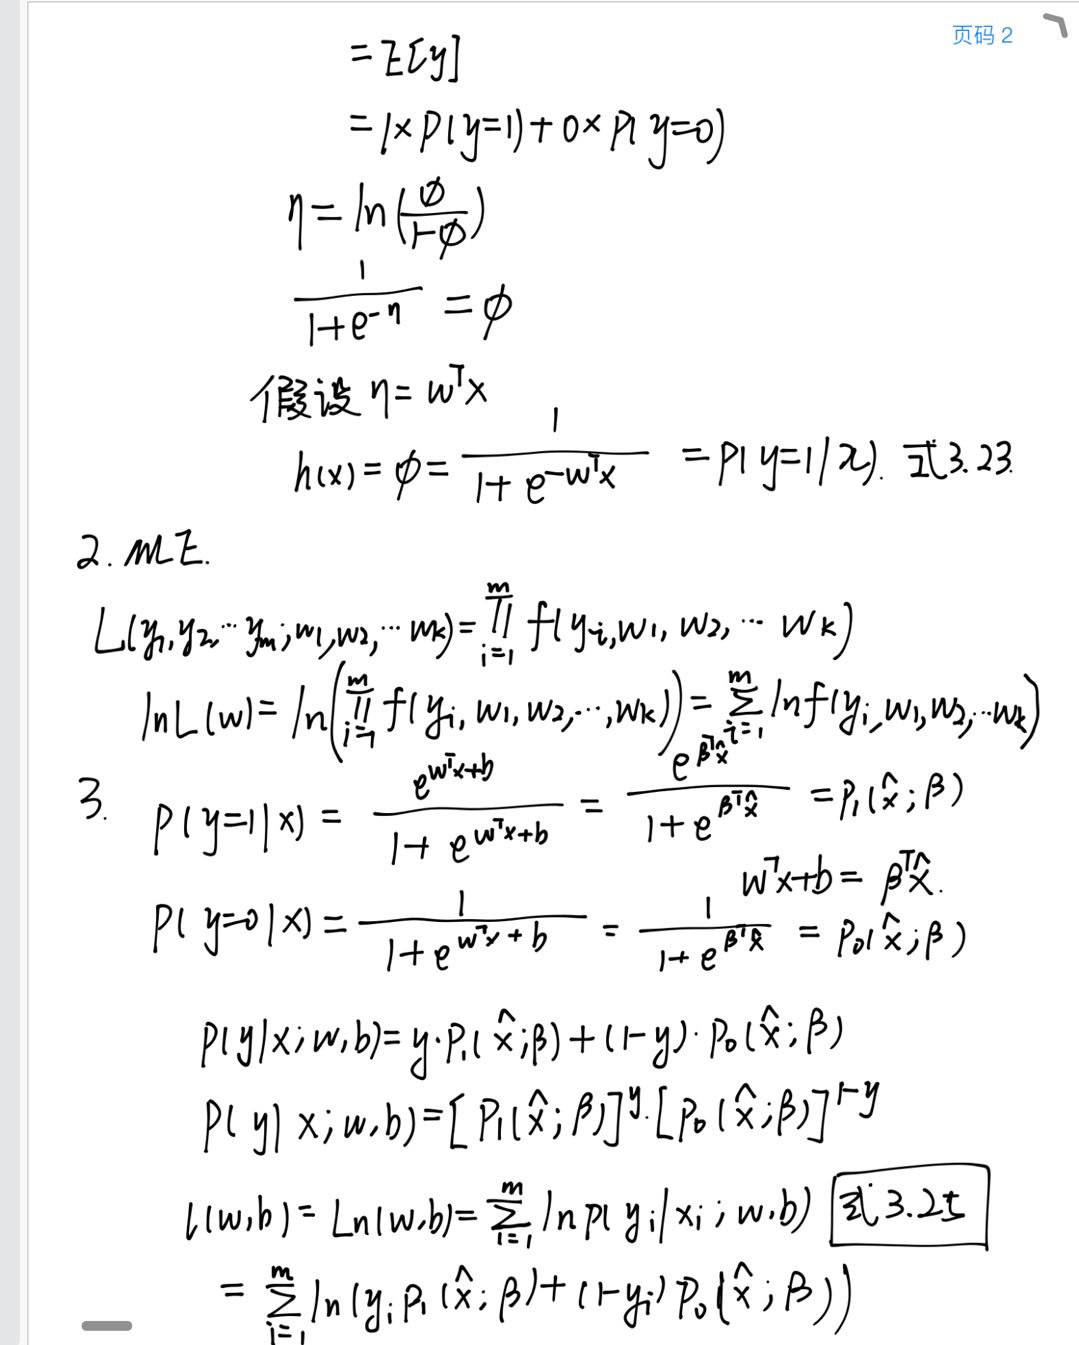 页码 2
= E[y]
= 1×P(y=1)+0×P(y=0)
η = ln(ϕ/(1-ϕ))
1/(1+e^{-η}) = ϕ
假设 η = wᵀx
h(x) = ϕ = 1/(1+e^{-wᵀx}) = P(y=1|x). 式3.23.
2. MLE.
L(y₁,y₂,…yₘ;w₁,w₂,…wₖ) = ∏_{i=1}^{m} f(yᵢ,w₁,w₂,…wₖ)
lnL(w) = ln(∏_{i=1}^{m} f(yᵢ,w₁,w₂,…,wₖ)) = ∑_{i=1}^{m} lnf(yᵢ,w₁,w₂,…wₖ)
3. P(y=1|x) = e^{wᵀx+b}/(1+e^{wᵀx+b}) = e^{βᵀx̂}/(1+e^{βᵀx̂}) = P₁(x̂;β)
wᵀx+b = βᵀx̂.
P(y=0|x) = 1/(1+e^{wᵀx+b}) = 1/(1+e^{βᵀx̂}) = P₀(x̂;β)
P(y|x;w,b) = y·P₁(x̂;β)+(1-y)·P₀(x̂;β)
P(y|x;w,b) = [P₁(x̂;β)]^{y}·[P₀(x̂;β)]^{1-y}
l(w,b) = Ln(w,b) = ∑_{i=1}^{m} ln p(yᵢ|xᵢ;w,b) 式3.25
= ∑_{i=1}^{m} ln(yᵢP₁(x̂;β)+(1-yᵢ)P₀(x̂;β))